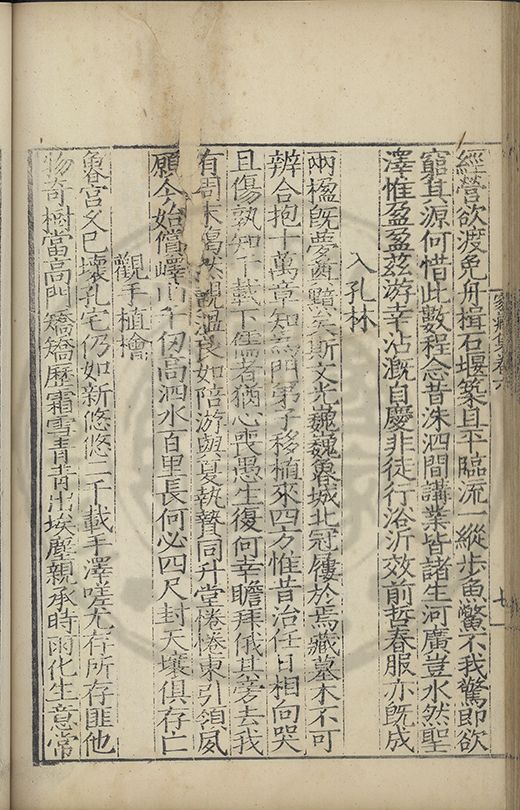 家藏集卷六
七
經營欲渡免舟楫石堰築且平臨流一縱步魚鱉不我驚即欲
窮其源何惜此數程念昔洙泗間講業皆諸生河廣豈水然聖
澤惟盈盈茲游幸沾溉自慶非徒行浴沂效前哲春服亦既成
入孔林
兩楹既夢奠黯矣斯文光巍巍魯城北冠屨於焉藏墓木不可
辨合抱十萬章知為門弟子移植來四方惟昔治任日相向哭
且傷孰知千載下儒者猶心喪愚生復何幸瞻拜俄其旁去我
有周末藹然親溫良如陪游與夏執贄同升堂惓惓東引領夙
願今始償嶧山千仞高泗水百里長何必四尺封天壤俱存亡
觀手植檜
魯宮久已壞孔宅仍如新悠悠二千載手澤嗟尤存所存匪他
物奇樹當高門矯矯歷霜雪青青出埃塵親承時雨化生意常